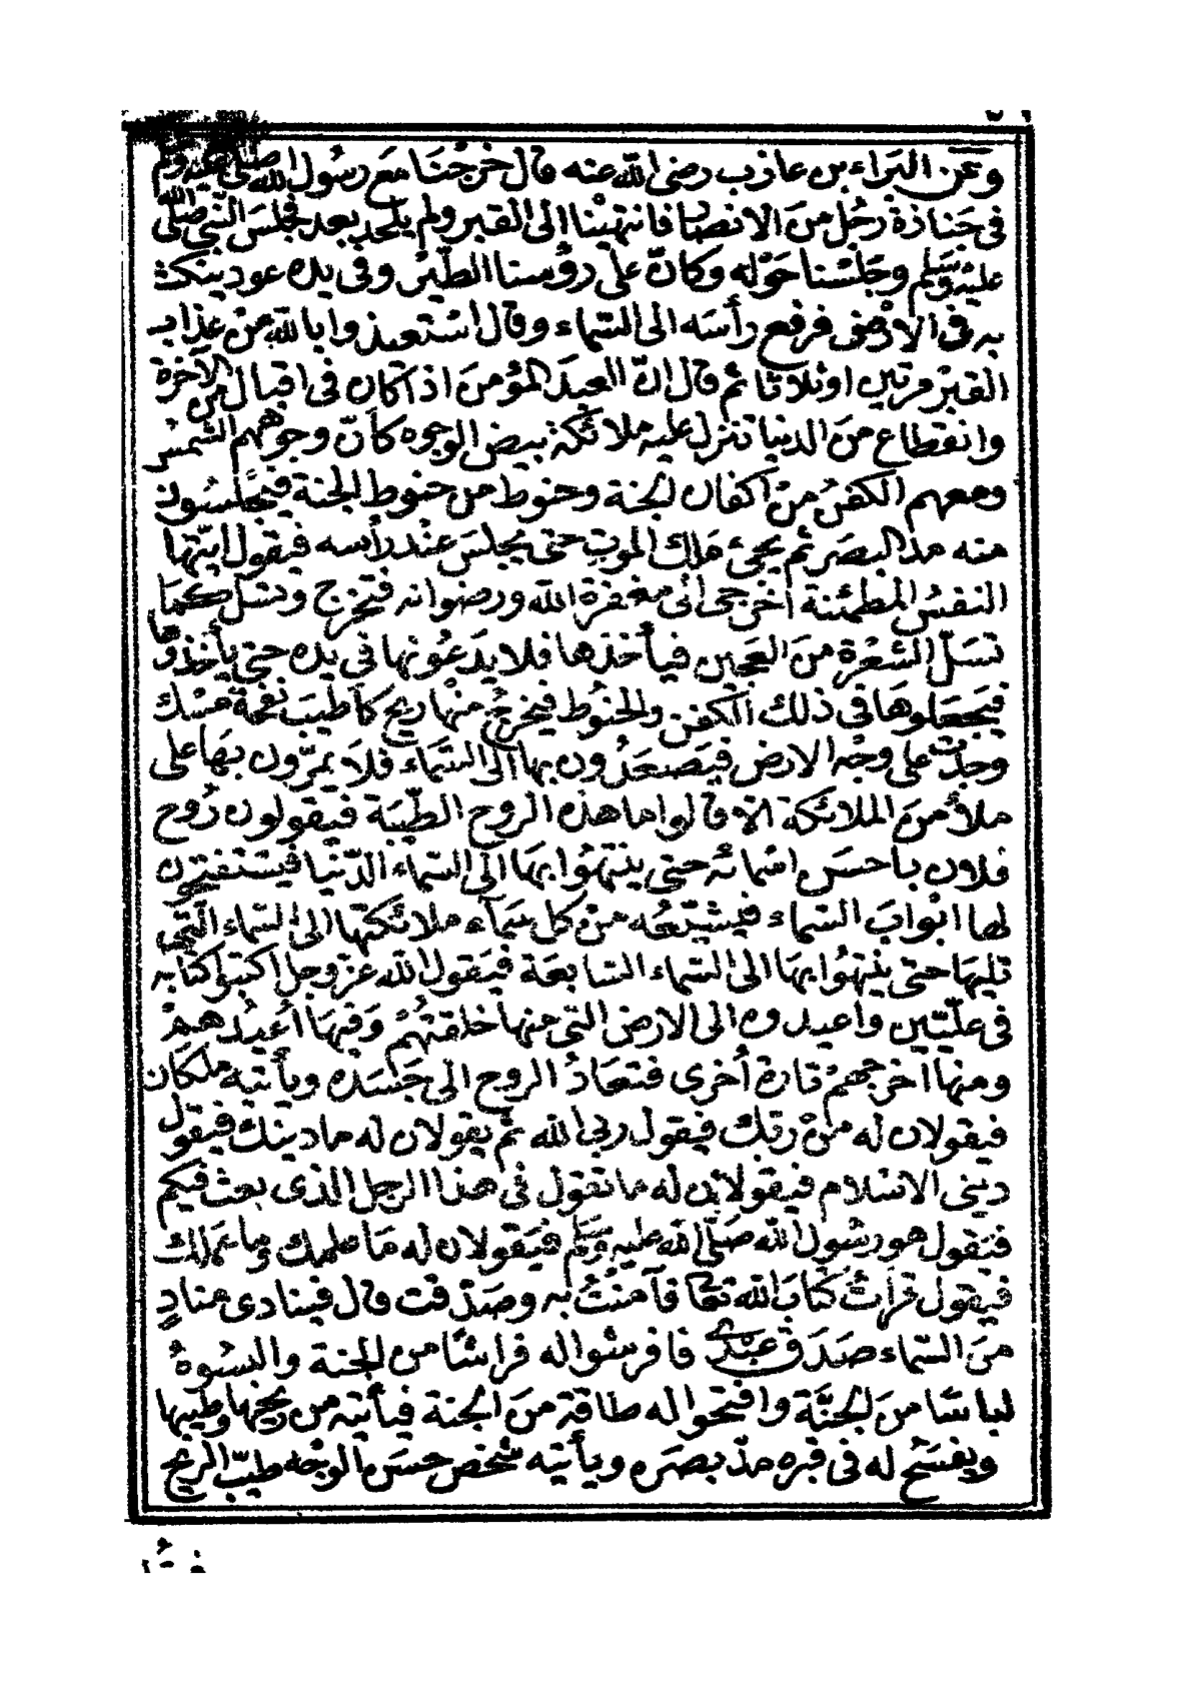 وعَن البَراء بن عازب رضى الله عنه قال خرجْنَا مَع رسُول الله صلى الله عليه وسلم
فى جَنازة رجُل منَ الانصار فانتهيْنا الى القبر ولم يلحد بعد فجلسَ النّبى صلى الله
عليْه وسَلم وجَلسْنا حَوْله وكانّ على رؤسنا الطّيرُ وفى يده عود ينكث
به فى الارْض فرفع رأسَه الى السّماء وقال اسْتعيذوا بالله منْ عذاب
القبرْ مرتين اوثلاثا ثم قال انّ العبدَ المؤمنَ اذا كان فى اقبال من الآخرة
وانقطاع منَ الدنيا تنزل عليه ملائكة بيض الوجوه كأنّ وجوههم الشمسُ
ومعهم الكفنُ منْ اكفان الجنة وحنوط من حنوط الجنة فيجلسُون
منه مد البصَر ثم يجئ مَلك الموتِ حتى يجلسَ عنْد رأسه فيقول ايتها
النفسُ المطمئنة اخرجى الى مغفرة الله ورضوانه فتخرج وتسَل كمَا
تسَلّ الشعْرة منَ العَجين فيأخذها فلا يدَعُونها فى يده حتى يأخذوها
فيَجعَلوهَا فى ذلك الكفن والحنُوط فيخرجُ منْها ريح كأطيَب نفحة مسْك
وجدَت على وجْه الارض فيَصْعَدُون بها الى السّماء فلاَ يمرّون بهَا على
ملأ منَ الملائكة الا قالوا ما هذه الروح الطّيبَة فيقولون رُوح
فلان بأحسَن اسْمائه حتى ينتهُوا بهَا الى السّماء الدّنيا فيسْتفتحون
لها ابْوابَ السّماء فيشيّعُه منْ كل سَمآء ملائكتها الى السّماء الّتى
تليهَا حتى ينْتهُوا بهَا الى السّماء السّابعَة فيَقول الله عزّ وجل اكتبوا كتابه
فى علّيّين واعيدوه الى الارض التى منها خلقتُهُمْ وَفيهَا اُعيدُ همْ
ومنها اخرجهمْ تارة أخرى فتعَادُ الروح الى جَسَده ويأتيه ملكان
فيقولان له منْ ربّك فيقول ربى الله ثم يقولان له ما دينك فيقول
دينى الاسْلام فيقولان له ما تقول فى هذا الرجل الذى بعث فيكم
فيَقول هو رسُول الله صَلّى الله عليه وسَلم فيَقولان له مَا علمك وما عملك
فيَقول قرأتُ كتابَ الله تعالى فآمنْتُ به وصَدّقت قال فينادى منادٍ
منَ السّماء صَدَق عبْدى فافرشوا له فراشًا من الجنة والبسُوهُ
لباسًا منَ الجنَّة وافتحوا له طاقة منَ الجنة فيأتيه من ريحها وطيبها
ويفسَحُ له فى قبره مدّ بصَره ويأتيه شخص حسَن الوجْه طيّب الريح